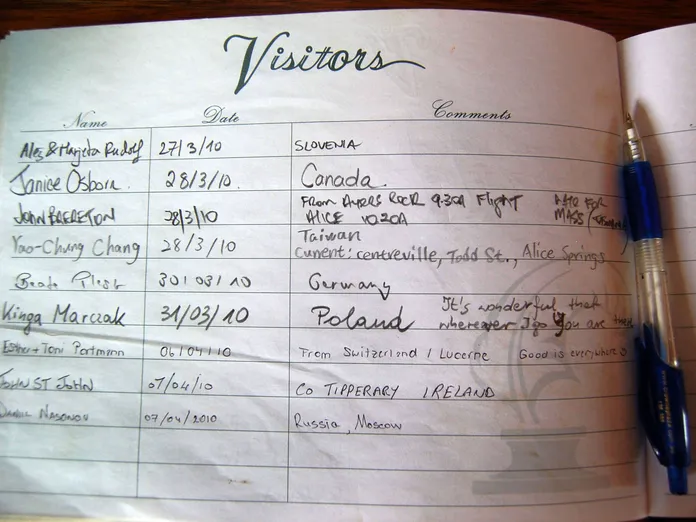 Visitors
Name Date Comments
Alez & Marjeta Rudolf 27/3/10 SLOVENIA
Janice Osborn. 28/3/10. Canada.
JOHN BRERETON 28/3/10 FROM AYERS ROCK 9.30A Flight FOR
ALICE 1020A MASS
Yao-Chung Chang 28/3/10 Taiwan
Curent: centreville, Todd St., Alice Springs
30/03/10 Germany
Kinga Marczak 31/03/10 Poland It's wonderful that
wherever I go you are there
Esther + Toni Portmann 06/04/10 From Switzerland / Lucerne Good is everywhere
JOHN ST JOHN 07/04/10 CO TIPPERARY IRELAND
Nasonov 07/04/2010 Russia, Moscow